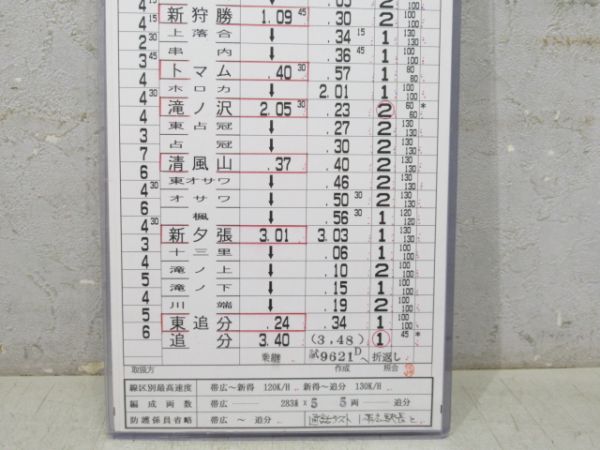 新狩勝 1.09 45 .30 2 100 100
上落合 ↓ .34 15 1 130
串内 ↓ .36 45 1 130
トマム .40 30 .57 1 130
ホロカ ↓ 2.01 1 100 100
滝ノ沢 2.05 30 .23 2 60 60 *
東占冠 ↓ .27 2 130 130
占冠 ↓ .30 2 130 130
清風山 .37 .40 2 130 130
東オサワ ↓ .46 2 130 130
オサワ ↓ .50 30 2 130 130
楓 ↓ .56 30 1 120 120
新夕張 3.01 3.03 1 130 130
十三里 ↓ .06 1 100 100
滝ノ上 ↓ .10 2 100 100
滝ノ下 ↓ .15 1 100 100
川端 ↓ .19 2 100 100
東追分 .24 .34 1 100 100
追分 3.40 (3.48) 1 45 *
乗継 試9621D へ 折返し
取扱方 作成 照合
線区別最高速度 帯広～新得 120K/H 新得～追分 130K/H
編成両数 帯広― 283系×5 5両―追分
防護係員省略 帯広 ～ 追分